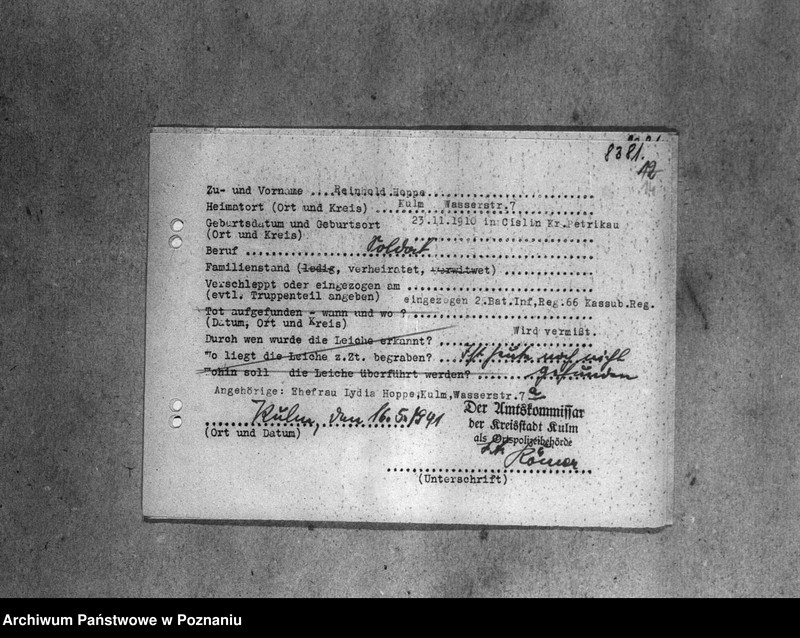 8381.
12
14
Zu- und Vorname ....Reinhold Hoppe....
Heimatort (Ort und Kreis) ...Kulm Wasserstr.7
Geburtsdatum und Geburtsort 23.11.1910 in Cislin Kr.Petrikau
(Ort und Kreis)
Beruf Soldat
Familienstand (ledig, verheiratet, verwitwet)
Verschleppt oder eingezogen am
(evtl. Truppenteil angeben) eingezogen 2.Bat.Inf,Reg.66 Kassub.Reg.
Tot aufgefunden - wann und wo ?
(Datum, Ort und Kreis) Wird vermißt.
Durch wen wurde die Leiche erkannt?
Wo liegt die Leiche z.Zt. begraben? Ist heute noch nicht
Wohin soll die Leiche überführt werden? gefunden
Angehörige: Ehefrau Lydia Hoppe,Kulm,Wasserstr.7a
Kulm, den 16.5.1941
(Ort und Datum)
Der Amtskommissar
der Kreisstadt Kulm
als Ortspolizeibehörde
Römer
(Unterschrift)
Archiwum Państwowe w Poznaniu